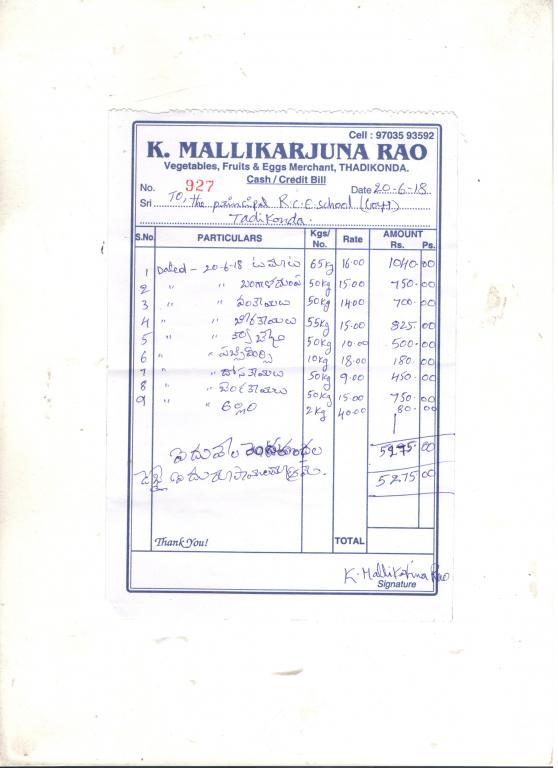 Cell : 97035 93592
K. MALLIKARJUNA RAO
Vegetables, Fruits & Eggs Merchant, THADIKONDA.
Cash / Credit Bill
No. 927 Date 20-6-18
Sri To, the principal R.C.E. school (Boys)
Tadikonda.
S.No. PARTICULARS Kgs/ No. Rate AMOUNT Rs. Ps.
1 Dated - 20-6-18 టమాట 65kg 16.00 1040.00
2 " " బంగాళదుంప 50kg 15.00 750.00
3 " " వంకాయలు 50kg 14.00 700.00
4 " " బీరకాయలు 55kg 15.00 825.00
5 " " 50kg 10.00 500.00
6 " " పచ్చిమిర్చి 10kg 18.00 180.00
7 " " దోసకాయలు 50kg 9.00 450.00
8 " " బెండకాయలు 50kg 15.00 750.00
9 " " అల్లం 2kg 40.00 80.00
ఐదువేల
5275.00
డెబ్బై ఐదు రూపాయలు మాత్రమే.
5275.00
Thank You! TOTAL
K. Mallikarjuna Rao
Signature